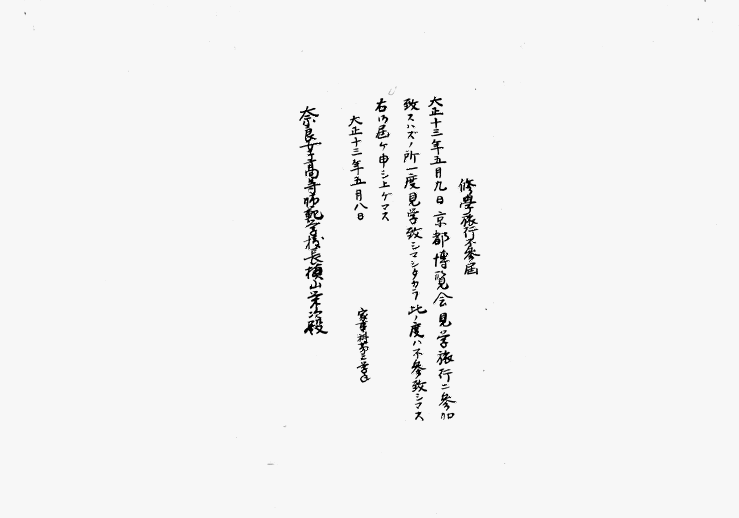 修學旅行不參届
大正十三年五月九日京都博覧会見学旅行ニ參加
致スハズノ所一度見学致シマシタカラ此ノ度ハ不參致シマス
右御届ケ申シ上ケマス
大正十三年五月八日
家事科第三学年
奈良女子高等師範学校長槇山栄次殿